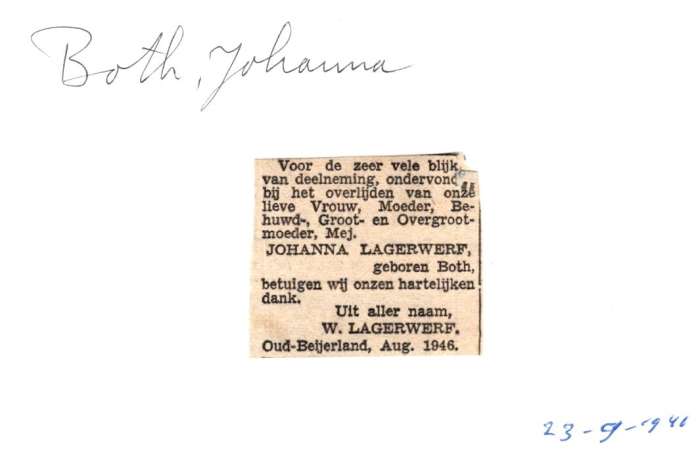 Both, Johanna
Voor de zeer vele blijk
van deelneming, ondervond
bij het overlijden van onze
lieve Vrouw, Moeder, Be-
huwd-, Groot- en Overgroot-
moeder, Mej.
JOHANNA LAGERWERF,
geboren Both,
betuigen wij onzen hartelijken
dank.
Uit aller naam,
W. LAGERWERF.
Oud-Beijerland, Aug. 1946.
23-9-1946